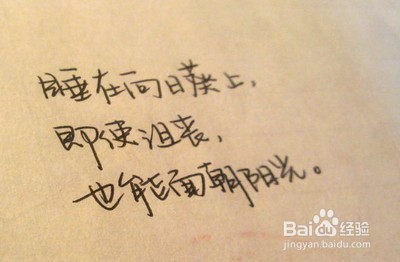 睡在向日葵上，
即使沮丧，
也能面朝阳光。
Baidu经验
jingyan.baidu.com